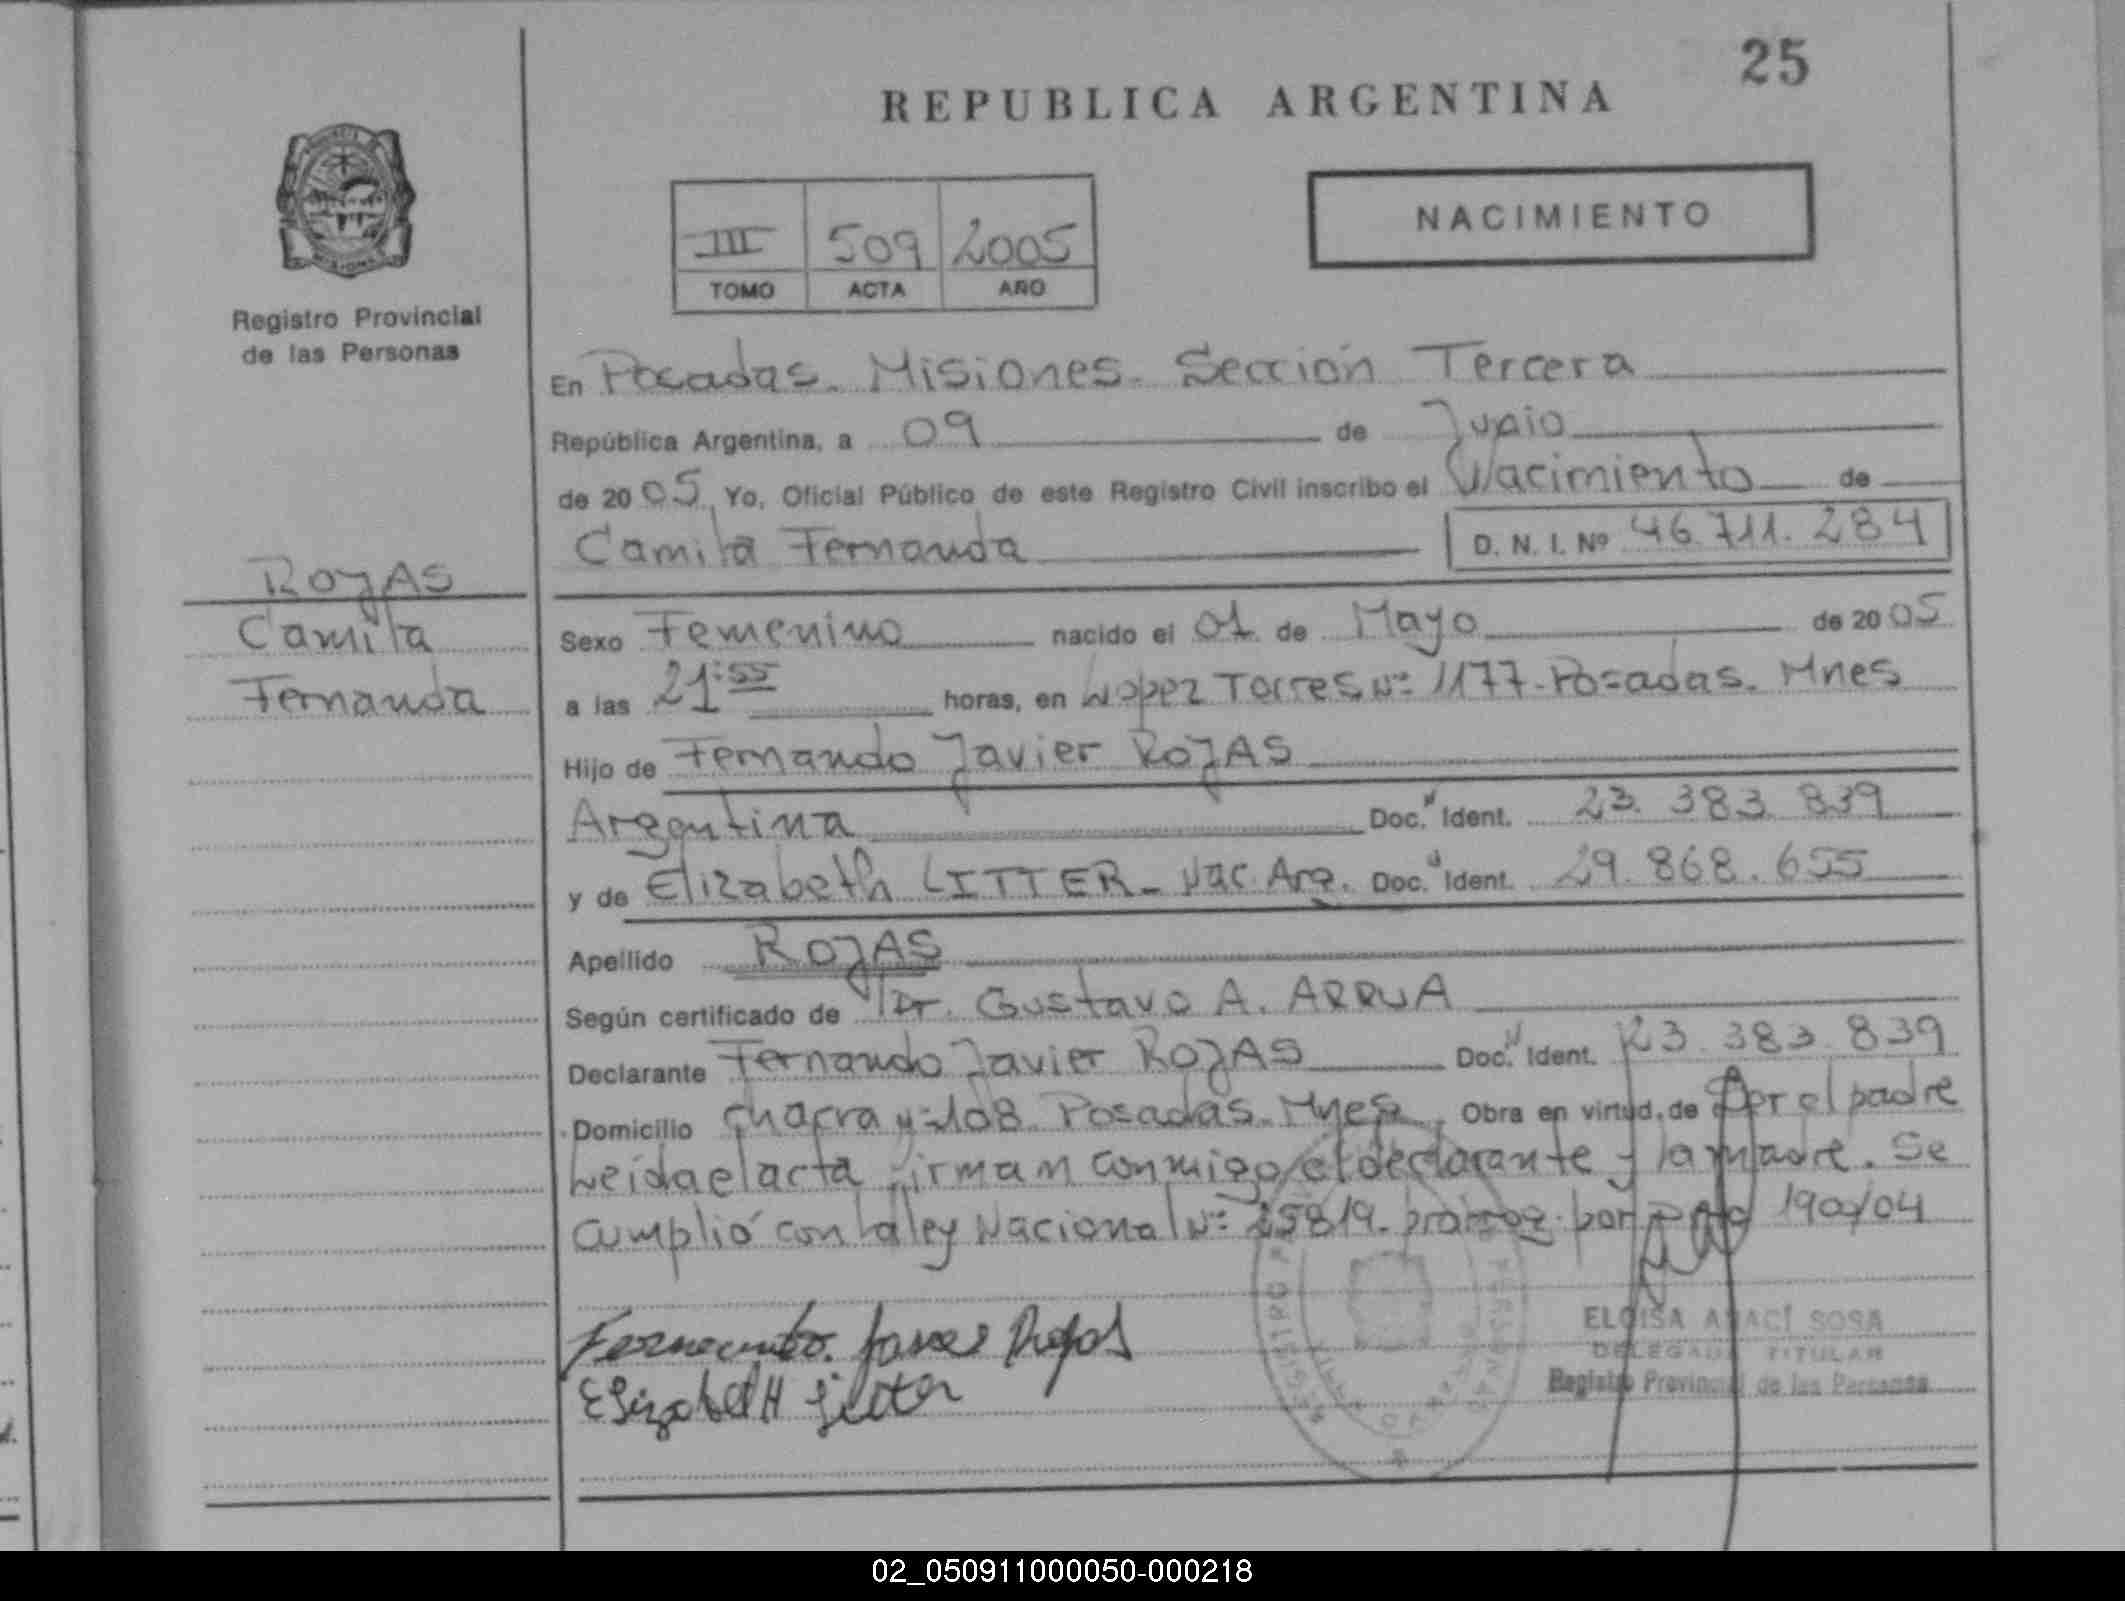 25
REPUBLICA ARGENTINA
NACIMIENTO
III 509 2005
TOMO ACTA AÑO
Registro Provincial
de las Personas
En Posadas. Misiones. Sección Tercera
República Argentina, a 09 de Junio
de 2005, Yo, Oficial Público de este Registro Civil inscribo el Nacimiento de
Camila Fernanda D. N. I. Nº 46.711.284
ROJAS
Camila
Fernanda
Sexo Femenino nacido el 01 de Mayo de 2005
a las 21:55 horas, en Lopez Torres Nº 1177-Posadas. Mnes
Hijo de Fernando Javier ROJAS
Argentina Doc. Ident. 23.383.839
y de Elizabeth LITTER - Nac. Arg. Doc. Ident. 29.868.655
Apellido ROJAS
Según certificado de Dr. Gustavo A. ARRUA
Declarante Fernando Javier ROJAS Doc. Ident. 23.383.839
Domicilio Chacra Nº 108 Posadas. Mnes. Obra en virtud de ser el padre
Leida el acta firman conmigo el declarante y la madre. Se
cumplió con la ley Nacional Nº 25819. por 190/04
Fernando Javier Rojas
ElizabetH Litter
ELOISA ARACÍ SOSA
DELEGADA TITULAR
Registro Provincial de las Personas
02_050911000050-000218